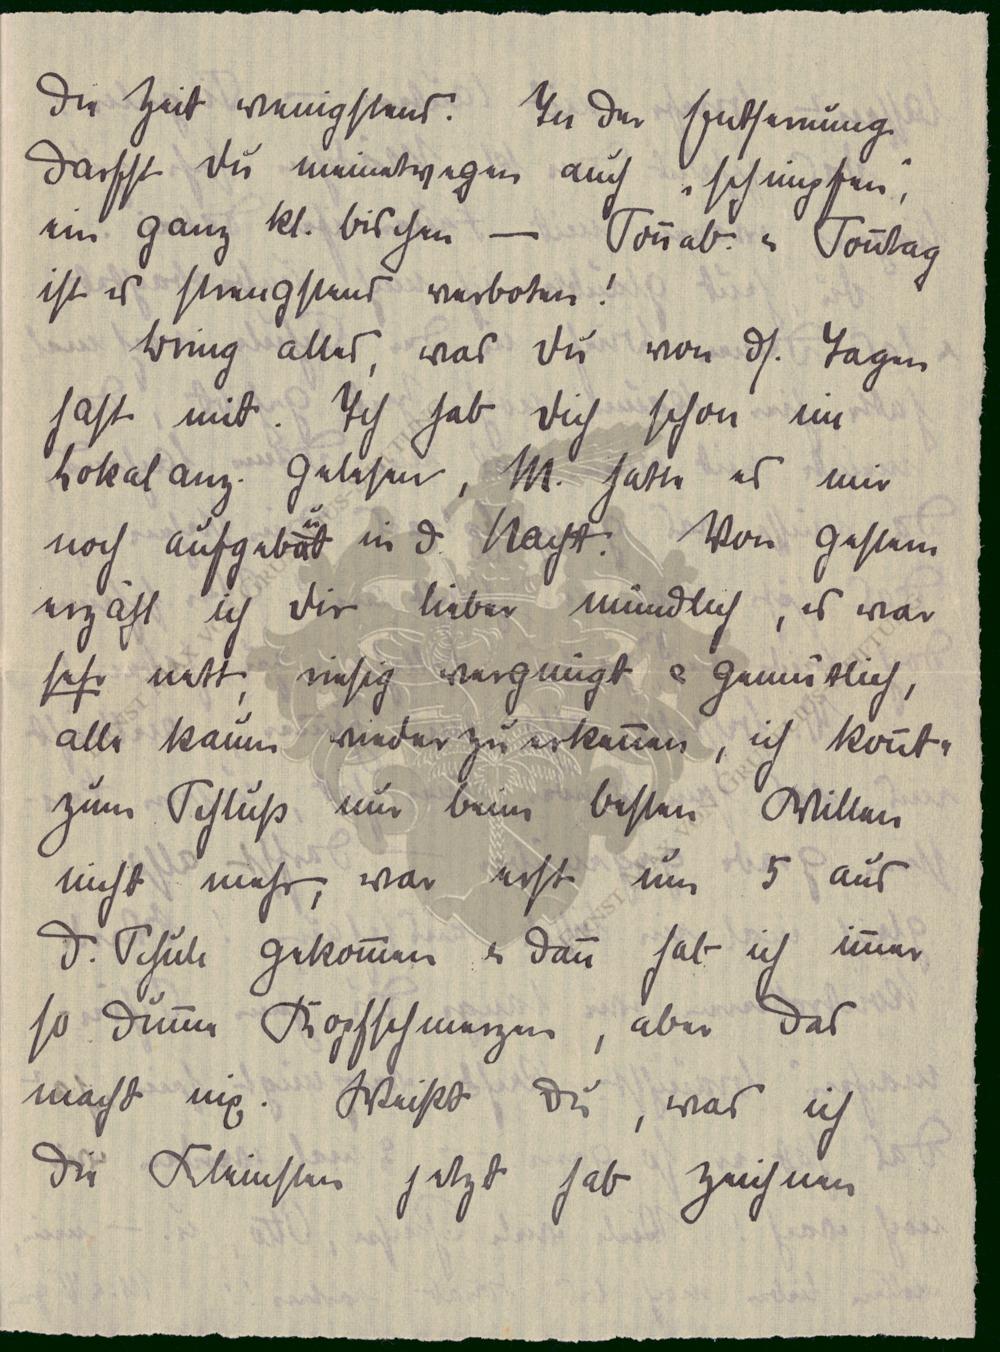 die Zeit wenigstens. In der Entfernung
darfst du meinetwegen auch „schimpfen",
ein ganz kl. bischen — Soñab. u Soñtag
ist es strengstens verboten!
bring alles, was du von ds. Tagen
hast mit. Ich hab dich schon im
Lokalanz. gelesen, M. hatte es mir
noch in d. Nacht. Von gestern
erzähl ich dir lieber mündlich, es war
sehr nett, riesig vergnügt u gemütlich,
alle kaum wiederzuerkeñen, ich koñte
zum Schluß nur beim besten Willen
nicht mehr, war erst um 5 aus
d. Schule gekom̄en u dañ hab ich im̄er
so dum̄e Kopfschmerzen, aber das
macht nix. Weißt du, was ich
die Kleinsten jetzt hab zeichnen